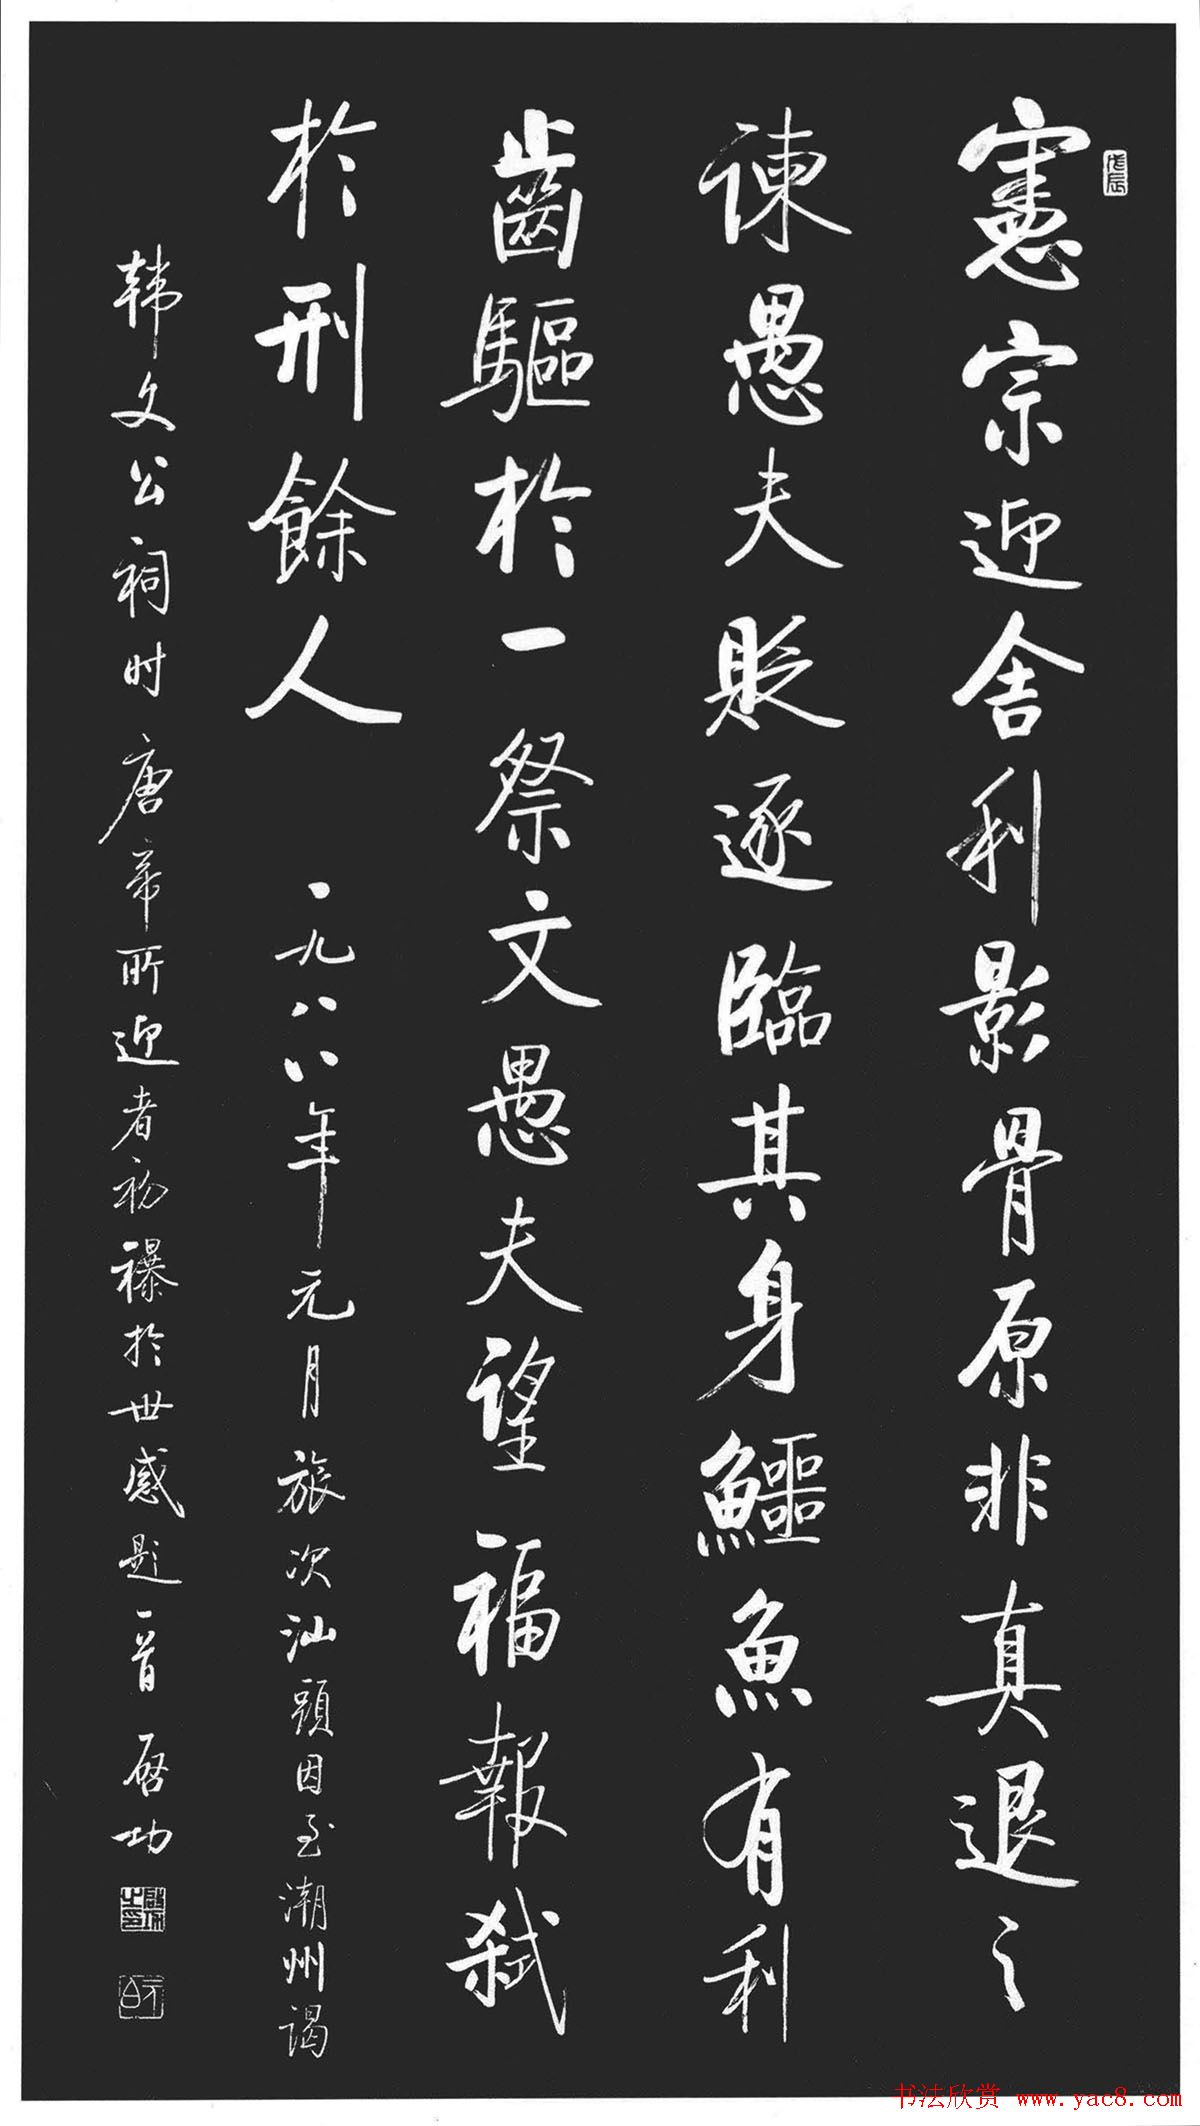 戊辰
憲宗迎舍利影骨原非真退之
諫愚夫貶逐臨其身鱷魚有利
齒驅於一祭文愚夫望福報弑
於刑餘人
一九八八年元月旅次汕頭因至潮州谒
韩文公祠时唐帝所迎者初襮於世感题一首 启功
书法欣赏 www.yac8.com